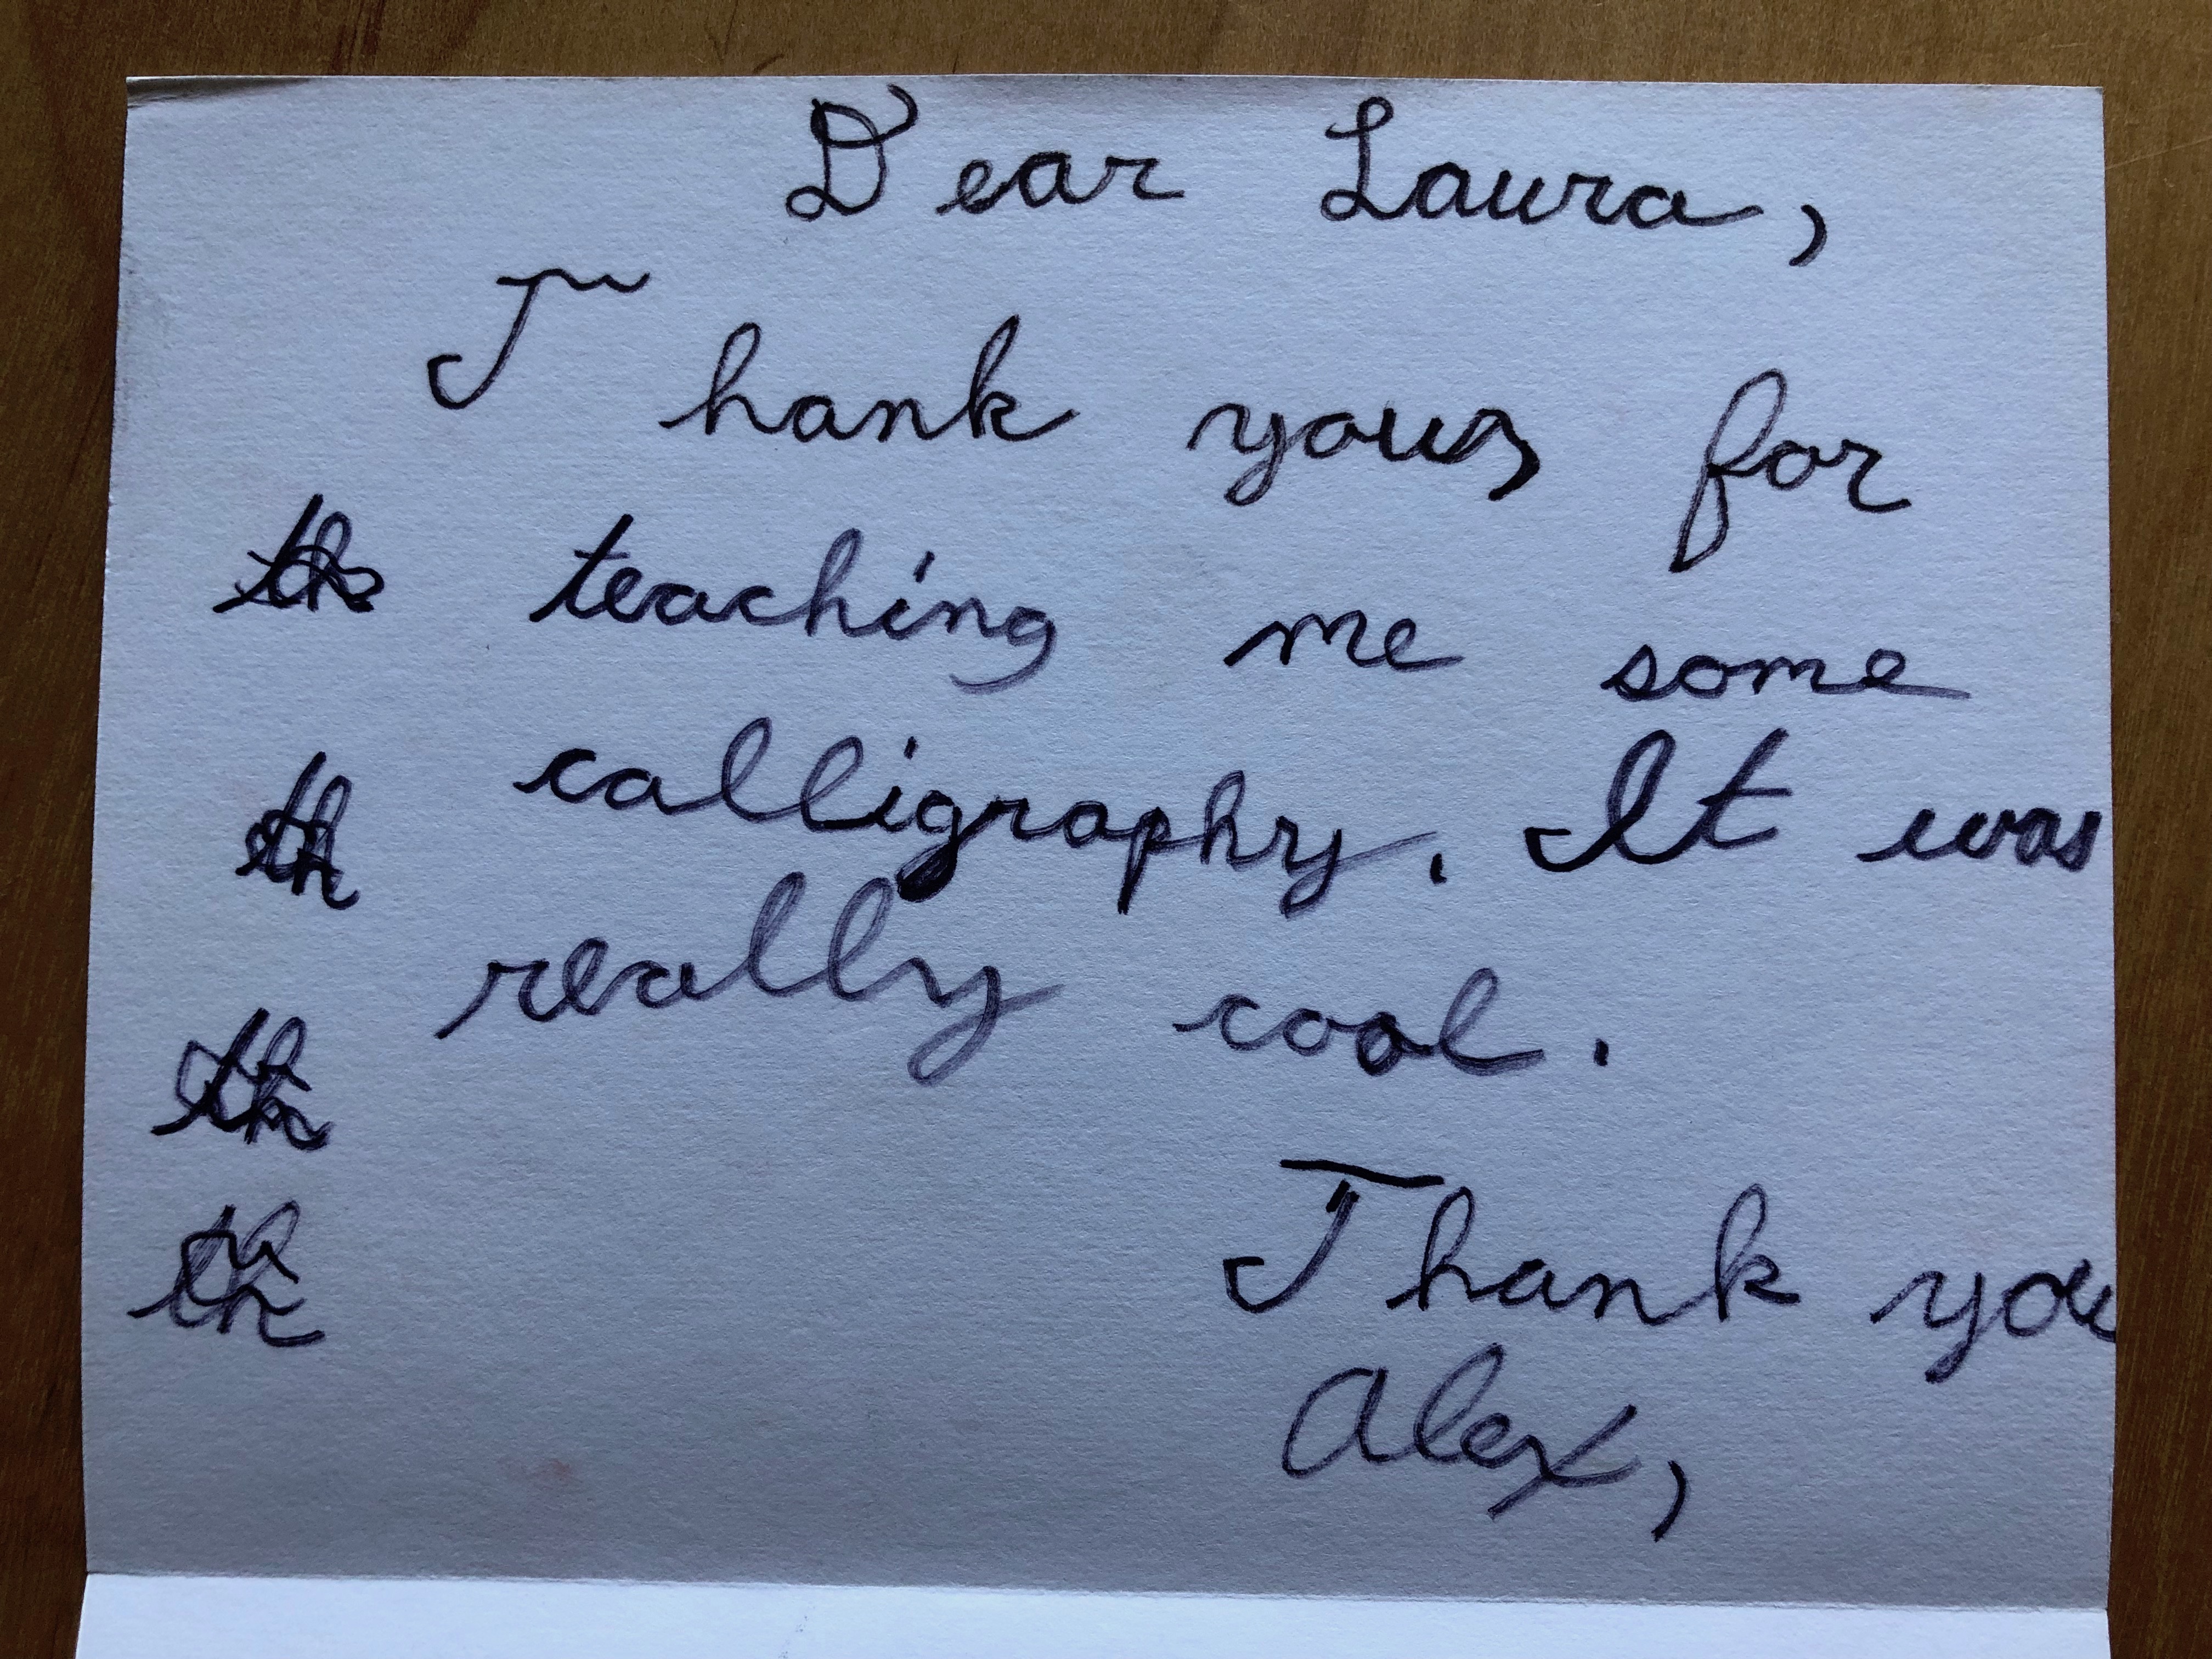 Dear Laura,
Thank you, for
th teaching me some
th calligraphy. It was
really cool.
th
Thank you
th
Alex,